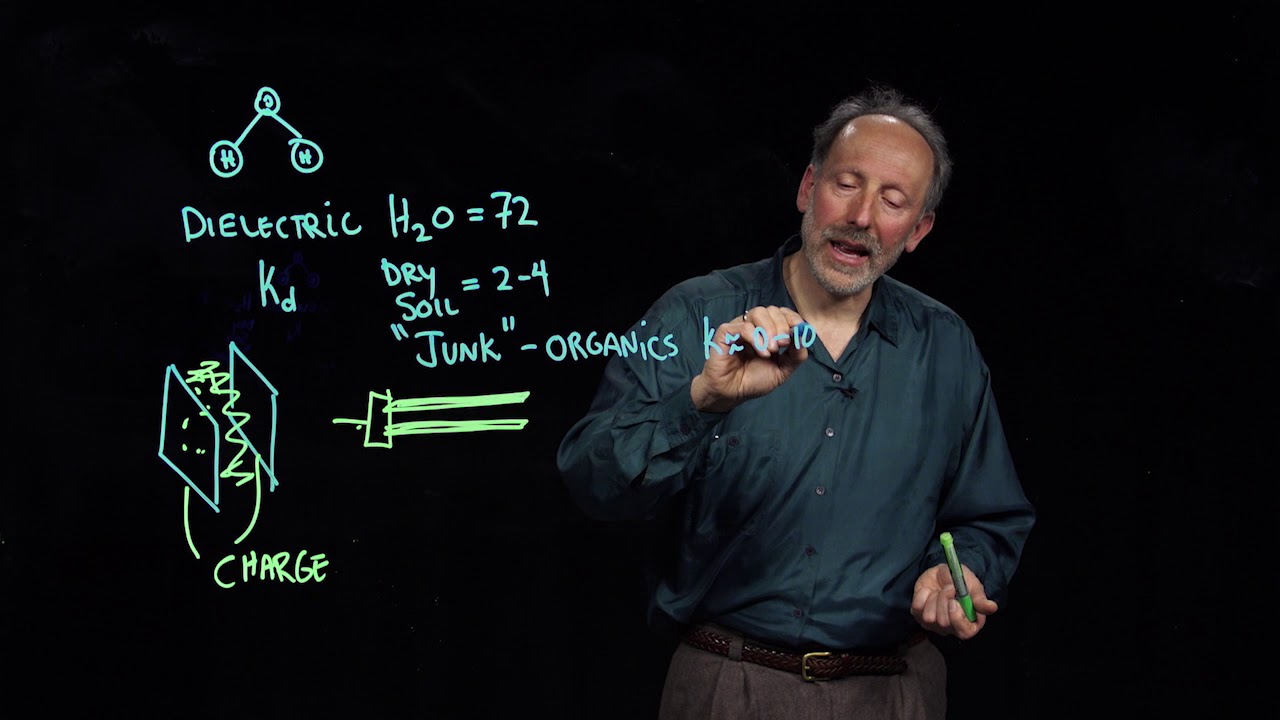 O
H H
DIELECTRIC H₂O = 72
Kd
DRY
SOIL = 2-4
"JUNK" - ORGANICS K ≈ 0-10
CHARGE